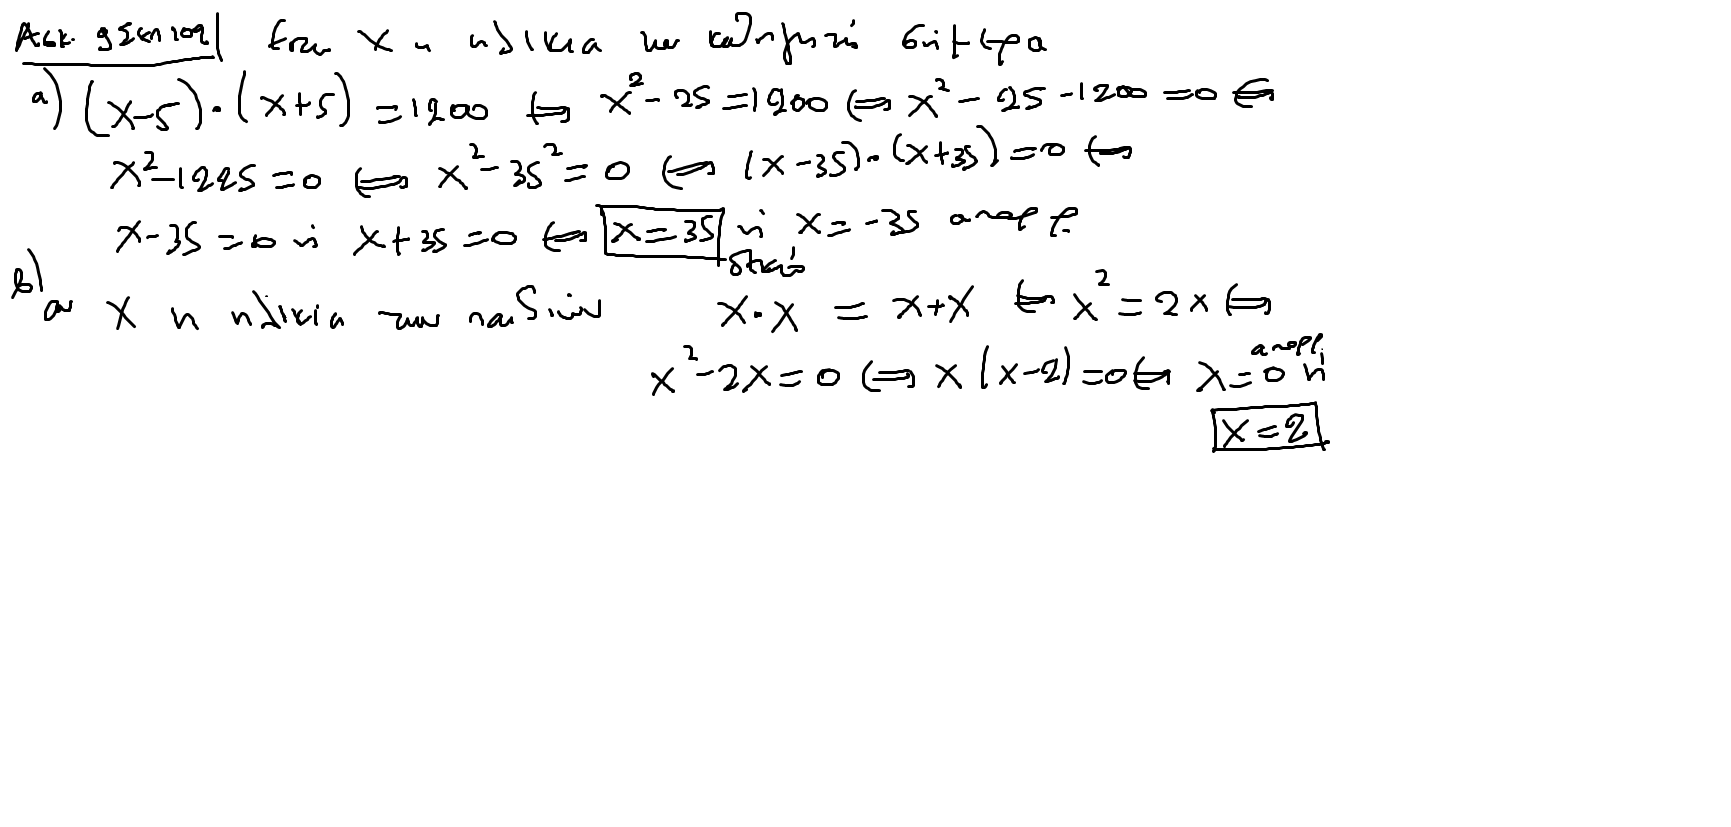 Ασκ. 9 Σελ 102 Έστω x η ηλικία του καθηγητή σήμερα
α) (x-5)·(x+5) = 1200 ⇔ x² - 25 = 1200 ⇔ x² - 25 - 1200 = 0 ⇔
x² - 1225 = 0 ⇔ x² - 35² = 0 ⇔ (x-35)·(x+35) = 0 ⇔
x-35 = 0 ή x+35 = 0 ⇔ x = 35 ή x = -35 απορρ.
δεκτό
β) αν x η ηλικία των παιδιών x·x = x+x ⇔ x² = 2x ⇔
x² - 2x = 0 ⇔ x(x-2) = 0 ⇔ x = 0 ή
απορρ.
x = 2